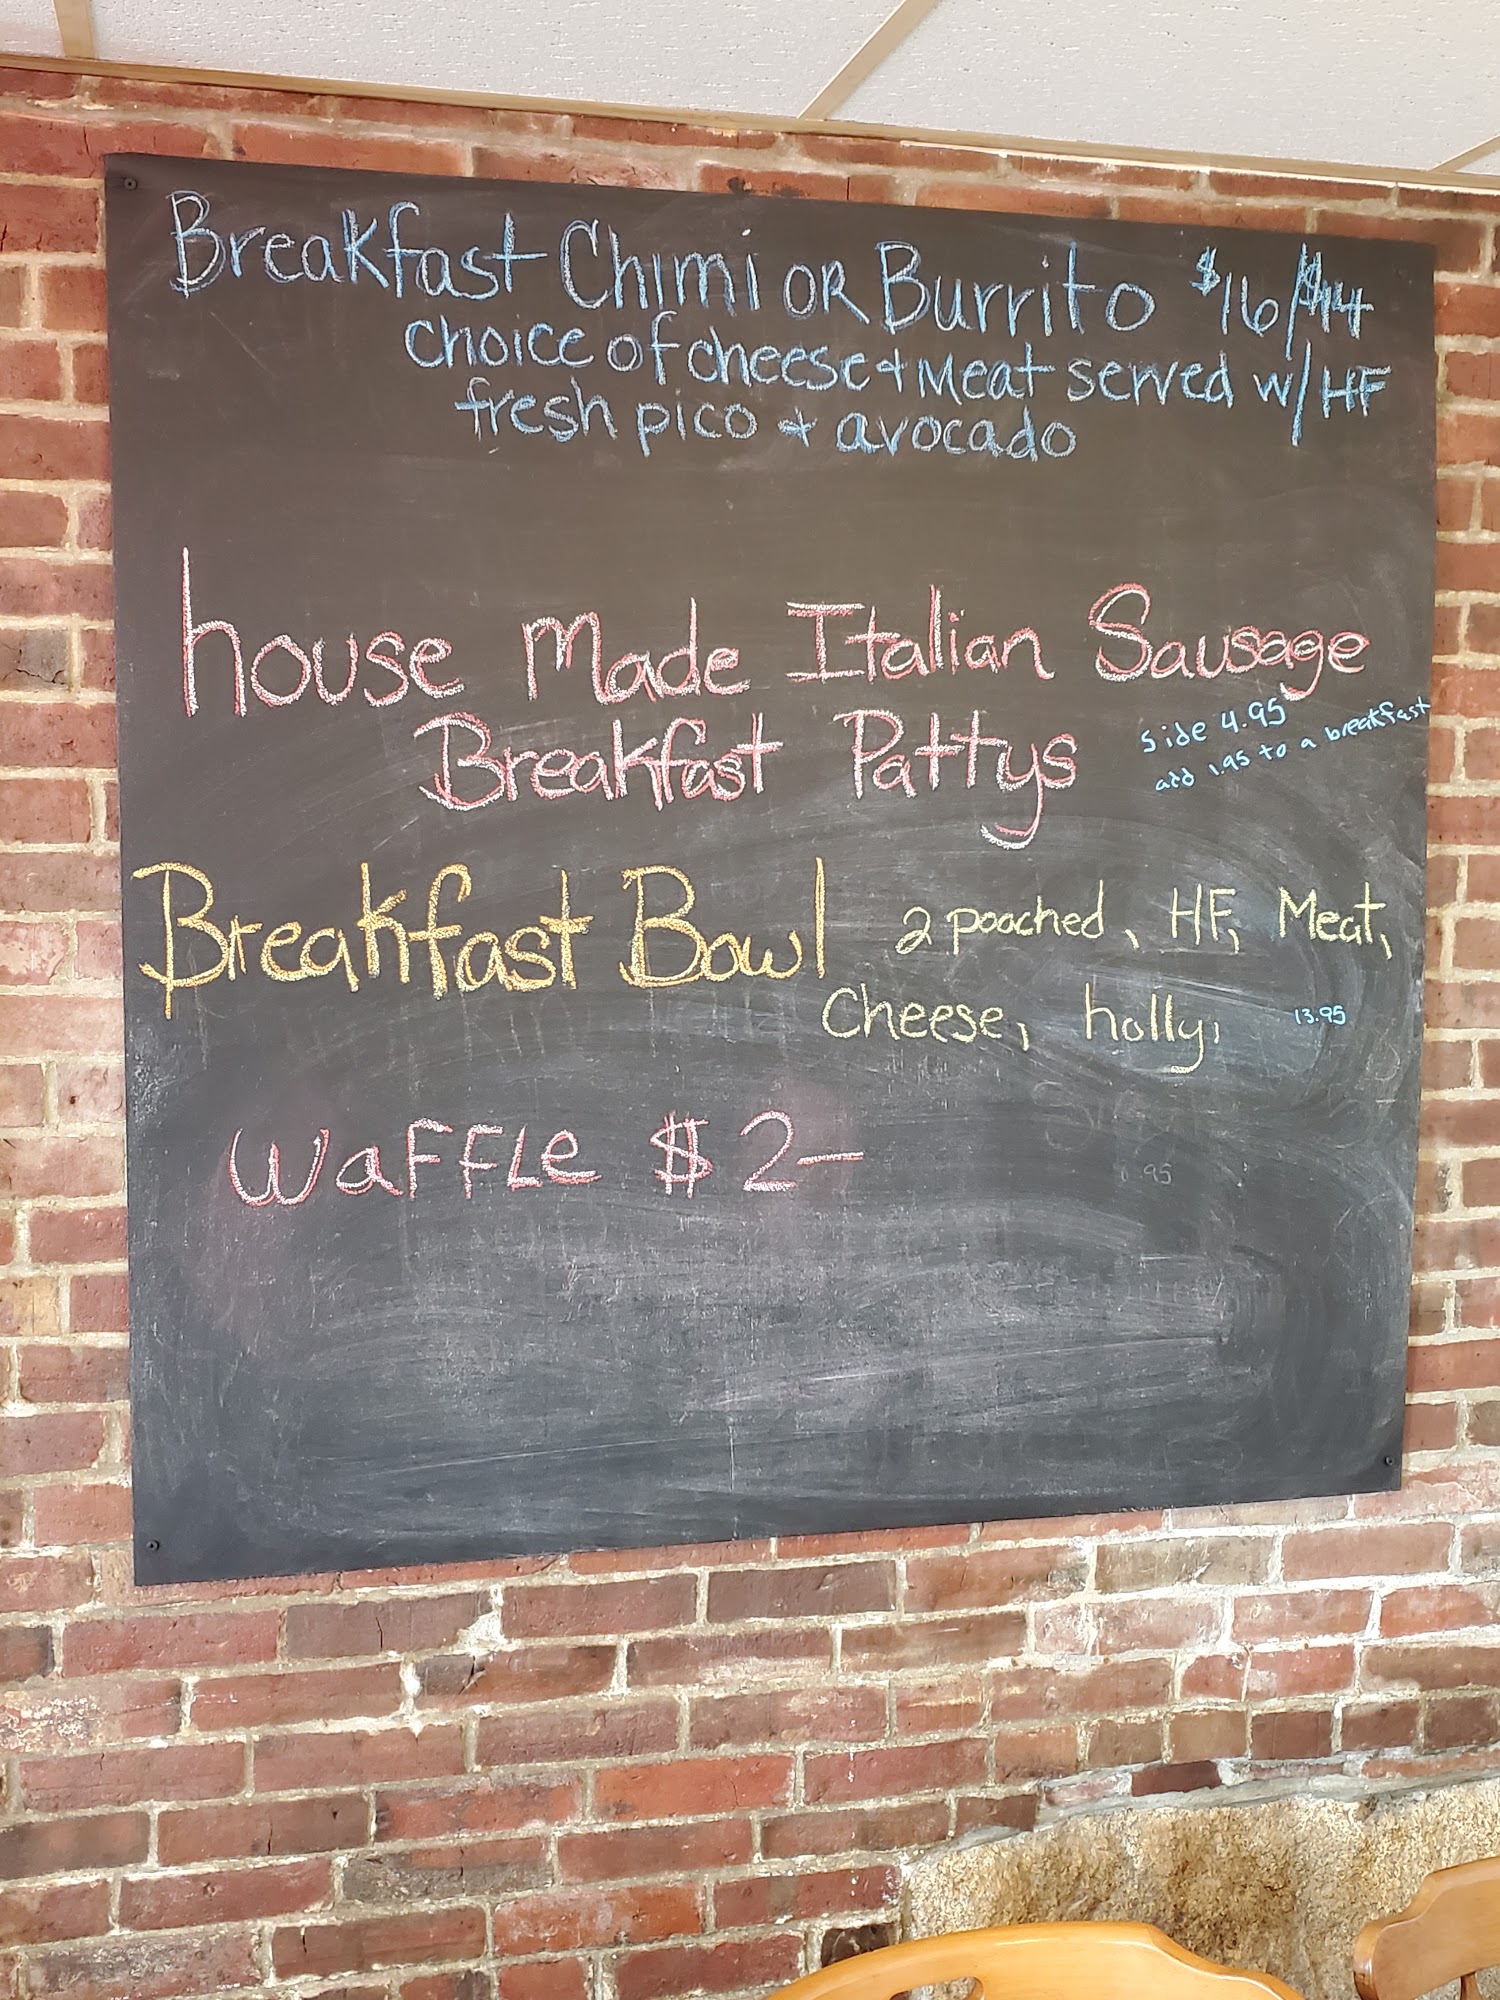 Breakfast Chimi OR Burrito $16/$14
choice of cheese + Meat served w/HF
fresh pico + avocado
house Made Italian Sausage
Breakfast Pattys
side 4.95
add 1.95 to a breakfast
Breakfast Bowl
2 poached, HF, Meat,
Cheese, holly,
13.95
WaFFLe $2-